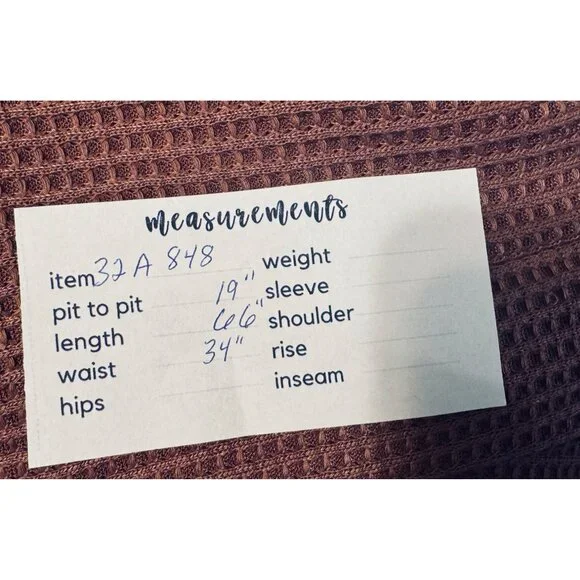 measurements
item 32 A 848
pit to pit 19"
length 66"
waist 34"
hips
weight
sleeve
shoulder
rise
inseam